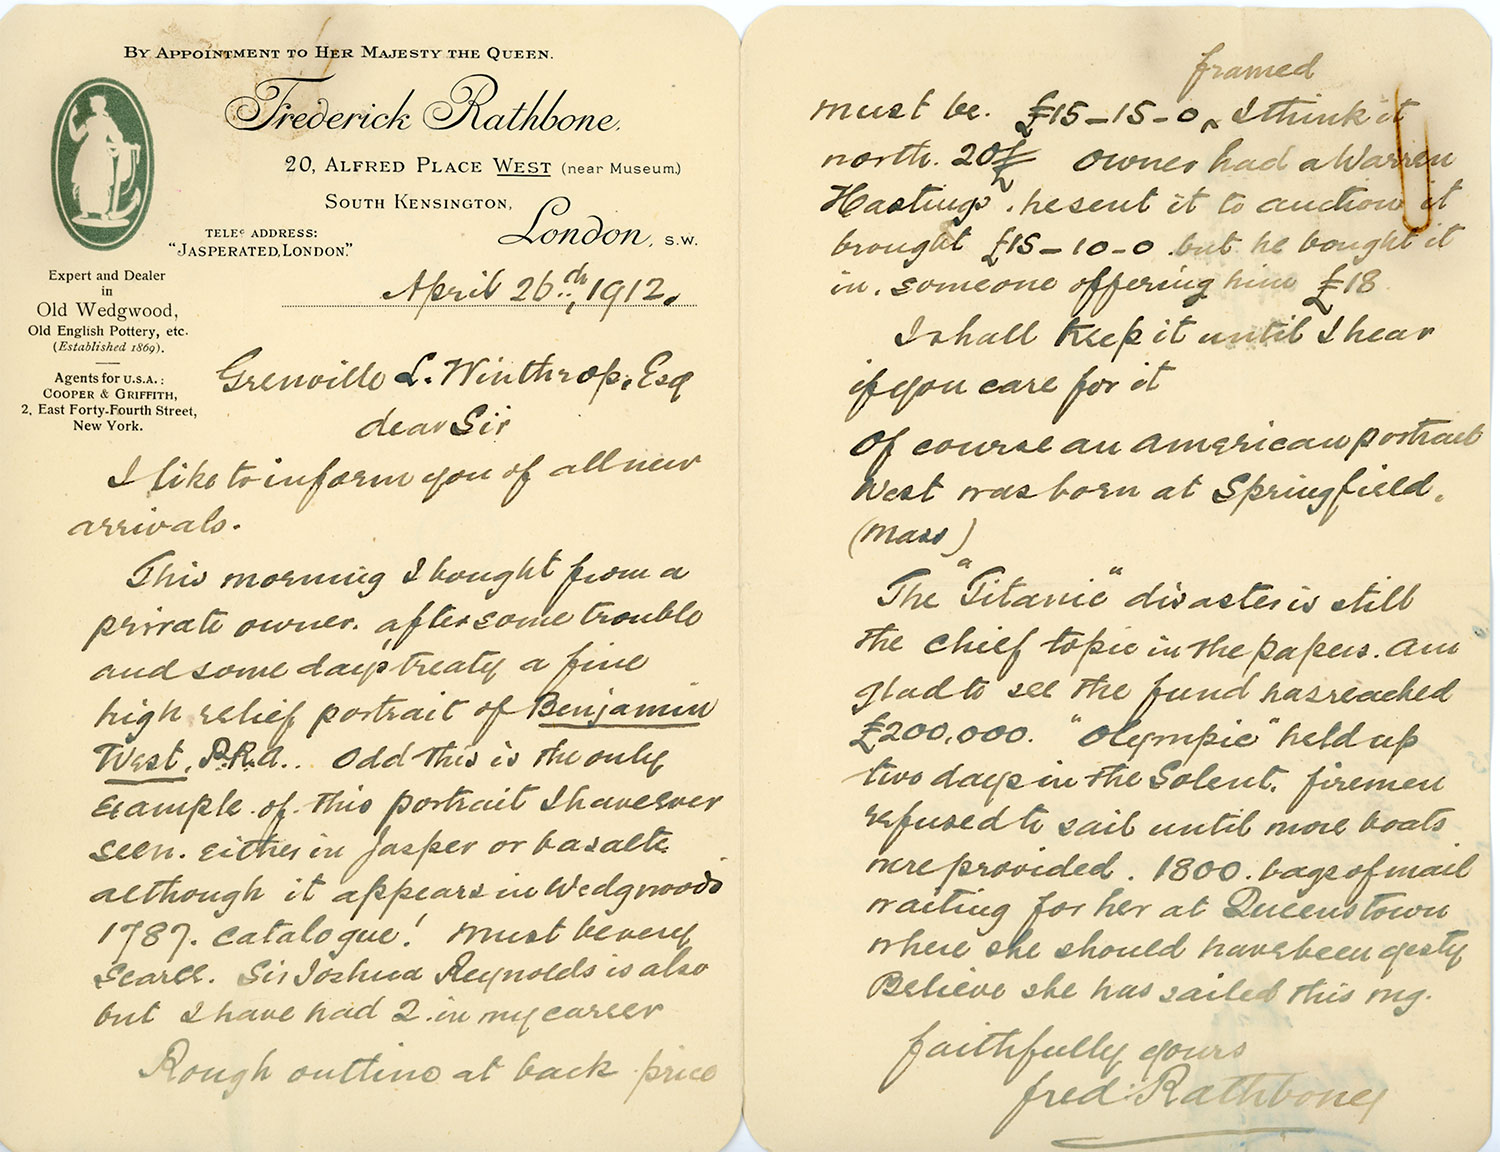 By Appointment to Her Majesty the Queen.
Frederick Rathbone.
20, Alfred Place West (near Museum.)
South Kensington,
London, S.W.
Tele: Address:
"Jasperated, London."
Expert and Dealer
in
Old Wedgwood,
Old English Pottery, etc.
(Established 1869).
Agents for U.S.A.:
Cooper & Griffith,
2, East Forty-Fourth Street,
New York.
April 26th, 1912.
Grenville L. Winthrop, Esq
dear Sir
I like to inform you of all new
arrivals.
This morning I bought from a
private owner. after some trouble
and some days treaty a fine
high relief portrait of Benjamin
West, P.R.A.. Odd this is the only
example of this portrait I have ever
seen. either in Jasper or basalte
although it appears in Wedgwood's
1787. catalogue! Must be very
scarce. Sir Joshua Reynolds is also
but I have had 2 in my career
Rough outline at back price
must be. £15-15-0 ‸ framed I think it
worth. 20£ Owner had a Warren
Hastings. he sent it to auction it
brought £15-10-0 but he bought it
in. someone offering him £18
I shall keep it until I hear
if you care for it
Of course an American portrait
West was born at Springfield.
(Mass)
The "Titanic" disaster is still
the chief topic in the papers. Am
glad to see the fund has reached
£200,000. "Olympic" held up
two days in the Solent. firemen
refused to sail until more boats
were provided. 1800. bags of mail
waiting for her at Queenstown
where she should have been yesty
Believe she has sailed this mg.
faithfully yours
fred: Rathbone